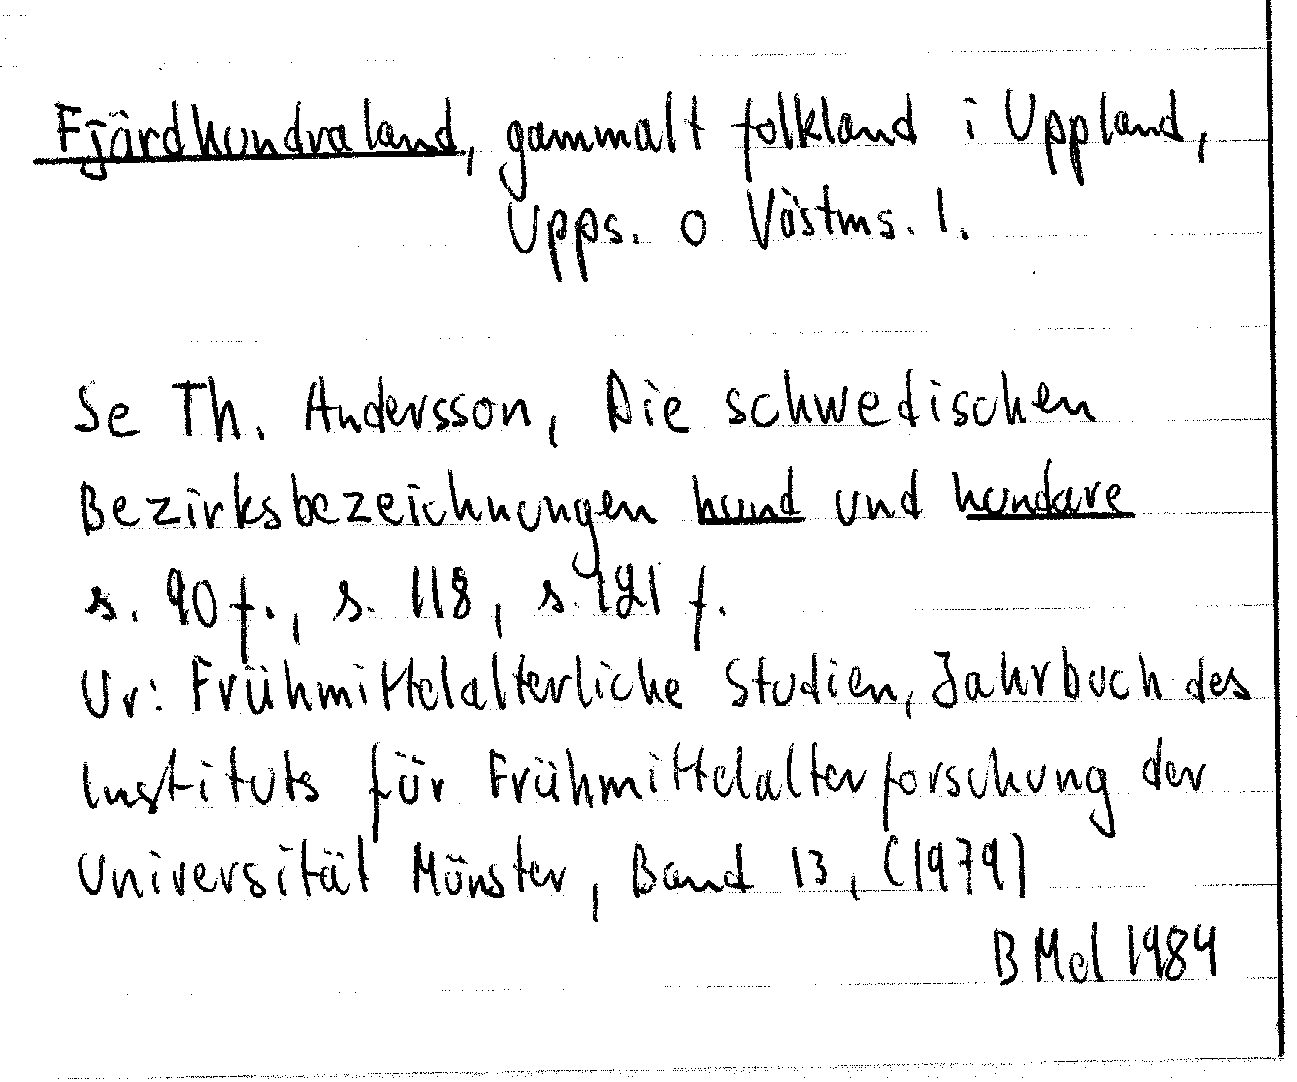 Fjärdhundraland, gammalt folkland i Uppland,
Upps. o Västms. l.
Se Th. Andersson, Die schwedischen
Bezirksbezeichnungen hund und hundare
s. 90 f., s. 118, s. 121 f.
Ur: Frühmittelalterliche Studien, Jahrbuch des
Instituts für Frühmittelalterforschung der
Universität Münster, Band 13, (1979)
B Mel 1984